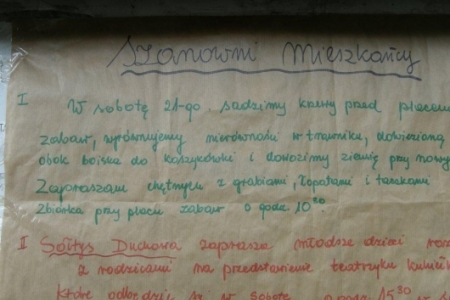 Szanowni Mieszkańcy
I W sobotę 21-go sadzimy krzewy przed placem
zabaw, wyrównujemy nierówności w trawniku, dowiezioną
obok boiska do koszykówki i dowozimy ziemię przy nowy
Zapraszam chętnych z grabiami, łopatami i taczkami
Zbiórka przy placu zabaw o godz. 10
II Sołtys Duchowa zaprasza młodsze dzieci raz
z rodzicami na przedstawienie teatrzyku
które odbędzie się w sobotę 15 30